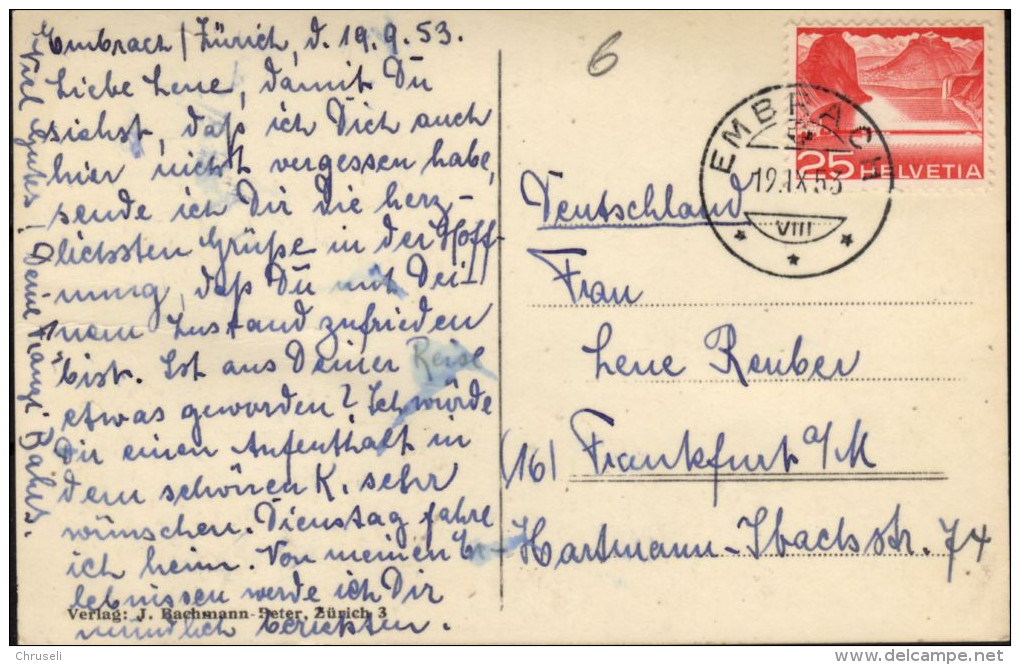 Embrach / Zürich, d. 19.9.53.
Liebe Lene, damit Du
siehst, daß ich Dich auch
hier nicht vergessen habe,
sende ich Dir die herz-
lichsten Grüße in der Hoff-
-nung, daß Du mit Dei-
nem Zustand zufrieden
bist. Ist aus Deiner Reise
etwas geworden? Ich würde
Dir einen Aufenthalt in
dem schönen K. sehr
wünschen. Dienstag fahre
ich heim. Von meinen Er-
lebnissen werde ich Dir
mündlich berichten.
Viel Gutes! Deine Bahls.
Verlag: J. Bachmann-Peter, Zürich 3
6
25 HELVETIA
EMBRACH
19.IX.53
VIII
Deutschland
Frau
Lene Reuber
(16) Frankfurt a/M
Hartmann-Ibachstr. 74
Chruseli
delcampe.net